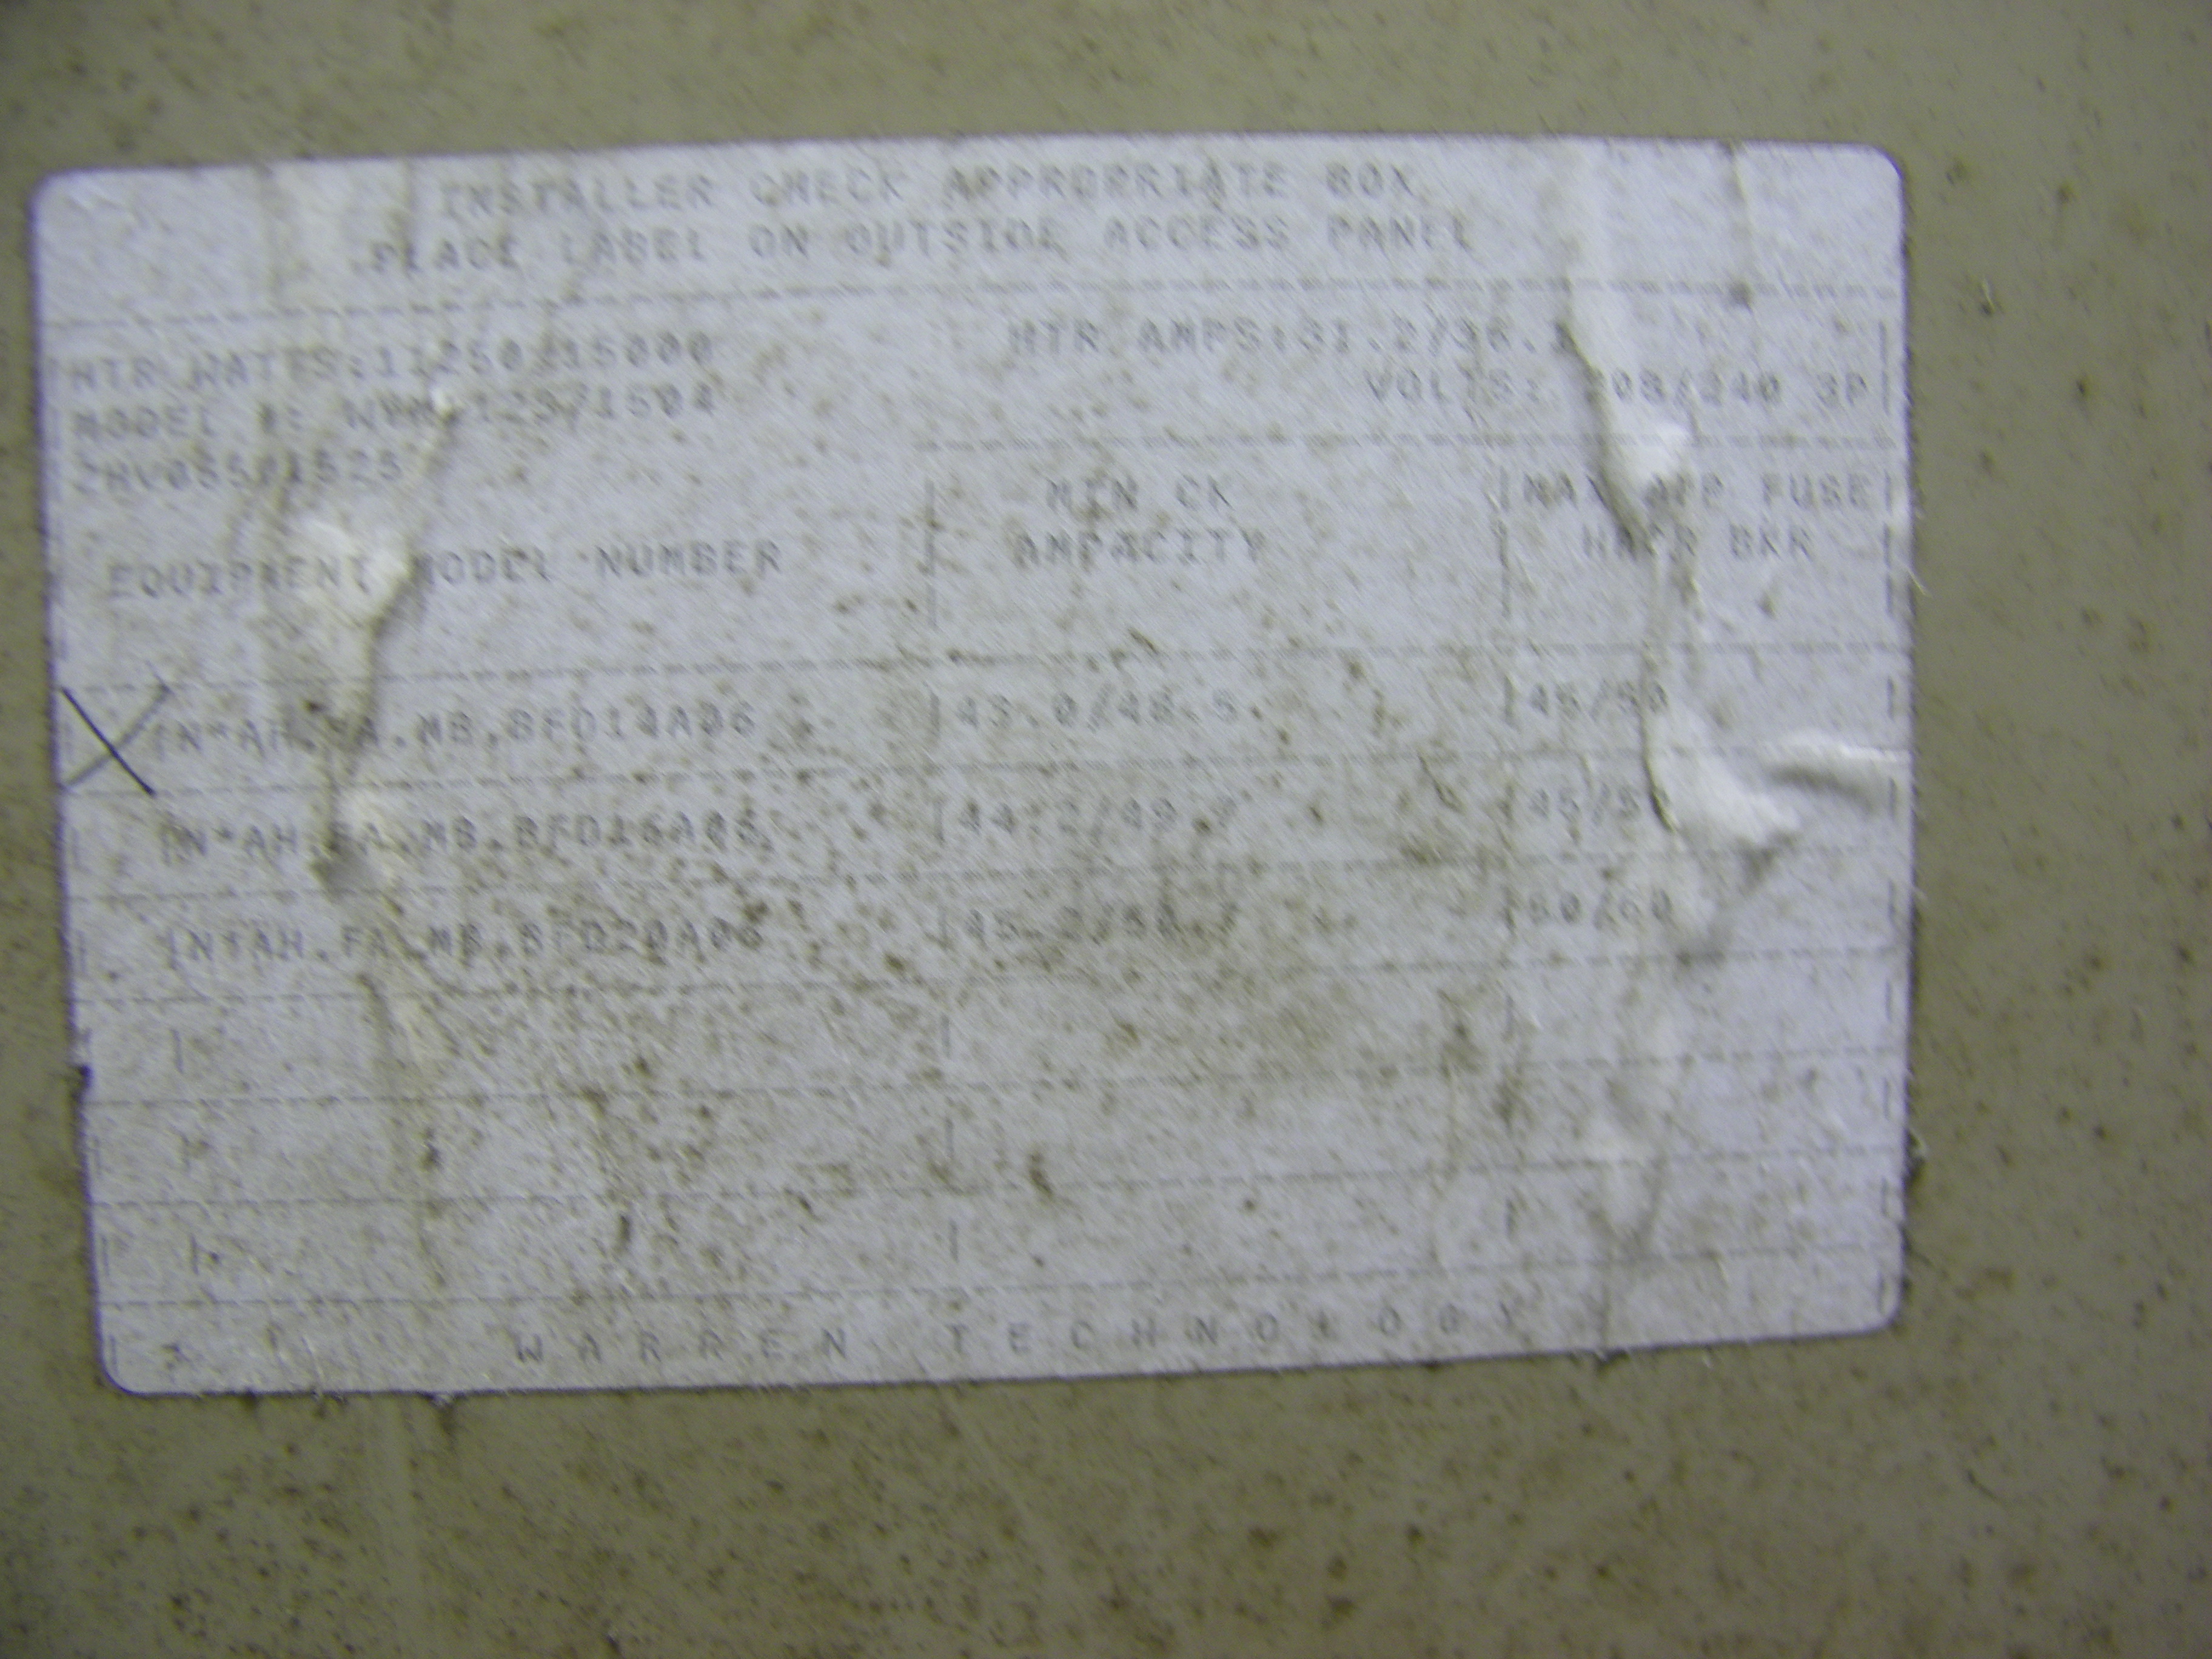 INSTALLER CHECK APPROPRIATE BOX
PLACE LABEL ON OUTSIDE ACCESS PANEL
HTR WATTS:11250/15000 HTR AMPS:31.2/36.1
MODEL #: VOLTS: 208/240 3P
EQUIPMENT MODEL NUMBER
MIN CK
AMPACITY
MAX APP FUSE
HACR BKR
X N*AH.FA.MB.BFD14A06 43.0/48.5 45/50
N*AH.FA.MB.BFD16A06 45/50
N*AH.FA.MB.BFD20A06 60/60
WARREN TECHNOLOGY